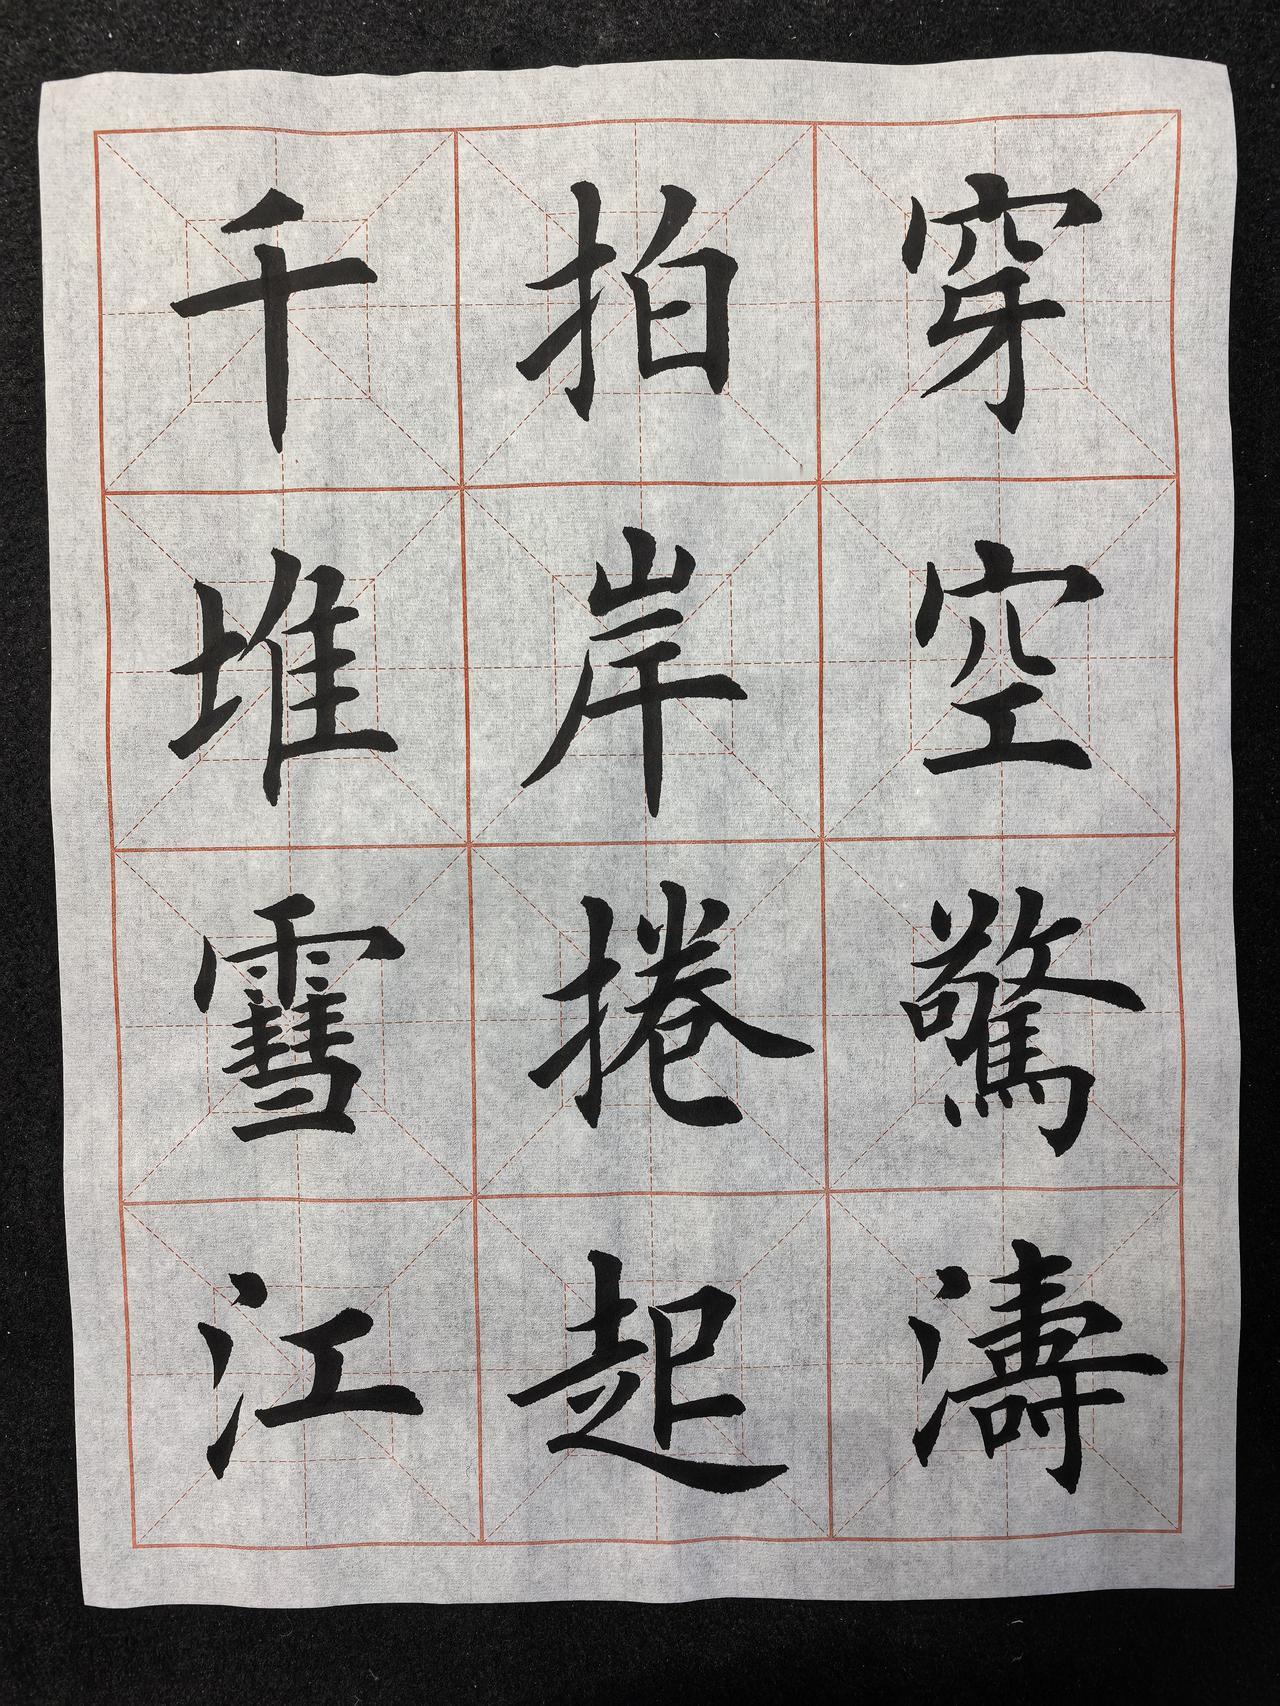 穿空驚濤
拍岸捲起
千堆雪江